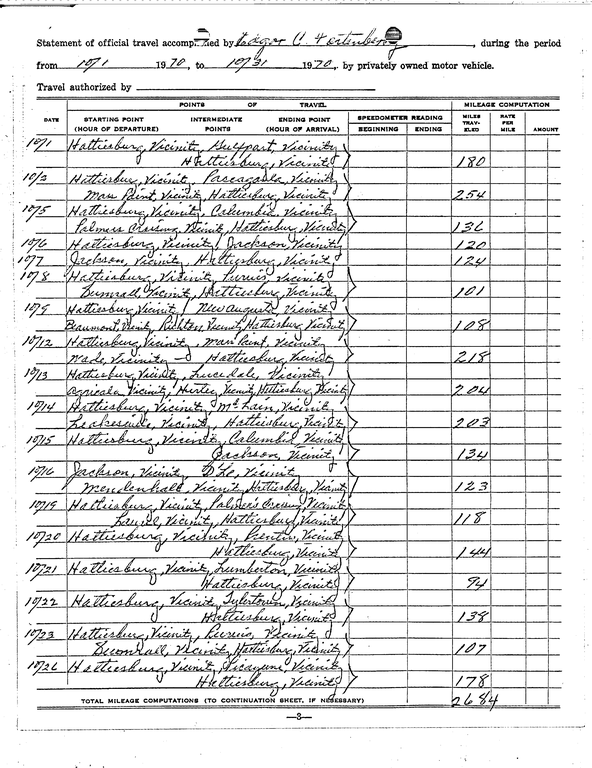 Statement of official travel accomp ied by Edgar C. Fortenberry, during the period
from 10/1 1970, to 10/31 1970, by privately owned motor vehicle.
Travel authorized by
POINTS OF TRAVEL MILEAGE COMPUTATION
DATE STARTING POINT (HOUR OF DEPARTURE) INTERMEDIATE POINTS ENDING POINT (HOUR OF ARRIVAL) SPEEDOMETER READING BEGINNING ENDING MILES TRAV-ELED RATE PER MILE AMOUNT
10/1 Hattiesburg, Vicinity, Gulfport, Vicinity
Hattiesburg, Vicinity 180
10/2 Hattiesburg, Vicinity, Pascagoula, Vicinity
Moss Point, Vicinity, Hattiesburg, Vicinity 254
10/5 Hattiesburg, Vicinity, Columbia, Vicinity
Palmers Crossing, Vicinity, Hattiesburg, Vicinity 136
10/6 Hattiesburg, Vicinity, Jackson, Vicinity 120
10/7 Jackson, Vicinity, Hattiesburg, Vicinity 124
10/8 Hattiesburg, Vicinity, Purvis, Vicinity
Sumrall, Vicinity, Hattiesburg, Vicinity 101
10/9 Hattiesburg, Vicinity, New Augusta, Vicinity
Beaumont, Vicinity, Richton, Vicinity, Hattiesburg, Vicinity 108
10/12 Hattiesburg, Vicinity, Moss Point, Vicinity
Wade, Vicinity – Hattiesburg, Vicinity 218
10/13 Hattiesburg, Vicinity, Lucedale, Vicinity
Agricola, Vicinity, Hurley, Vicinity, Hattiesburg, Vicinity 204
10/14 Hattiesburg, Vicinity, McLain, Vicinity
Leakesville, Vicinity, Hattiesburg, Vicinity 203
10/15 Hattiesburg, Vicinity, Columbia, Vicinity
Jackson, Vicinity 134
10/16 Jackson, Vicinity, D'Lo, Vicinity
Mendenhall, Vicinity, Hattiesburg, Vicinity 123
10/19 Hattiesburg, Vicinity, Palmer's Crossing, Vicinity
Laurel, Vicinity, Hattiesburg, Vicinity 118
10/20 Hattiesburg, Vicinity, Prentiss, Vicinity
Hattiesburg, Vicinity 144
10/21 Hattiesburg, Vicinity, Lumberton, Vicinity
Hattiesburg, Vicinity 94
10/22 Hattiesburg, Vicinity, Tylertown, Vicinity
Hattiesburg, Vicinity 138
10/23 Hattiesburg, Vicinity, Purvis, Vicinity
Sumrall, Vicinity, Hattiesburg, Vicinity 107
10/26 Hattiesburg, Vicinity, Picayune, Vicinity
Hattiesburg, Vicinity 178
TOTAL MILEAGE COMPUTATIONS (TO CONTINUATION SHEET, IF NECESSARY) 2684
—3—